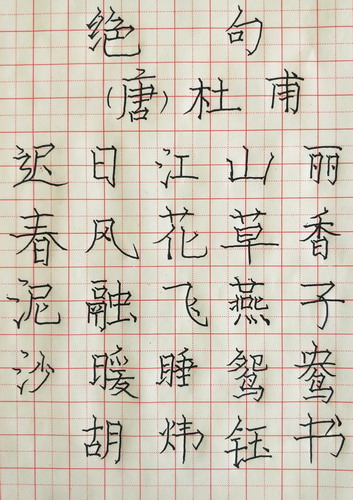 绝句
(唐)杜甫
迟日江山丽
春风花草香
泥融飞燕子
沙暖睡鸳鸯
胡炜钰书